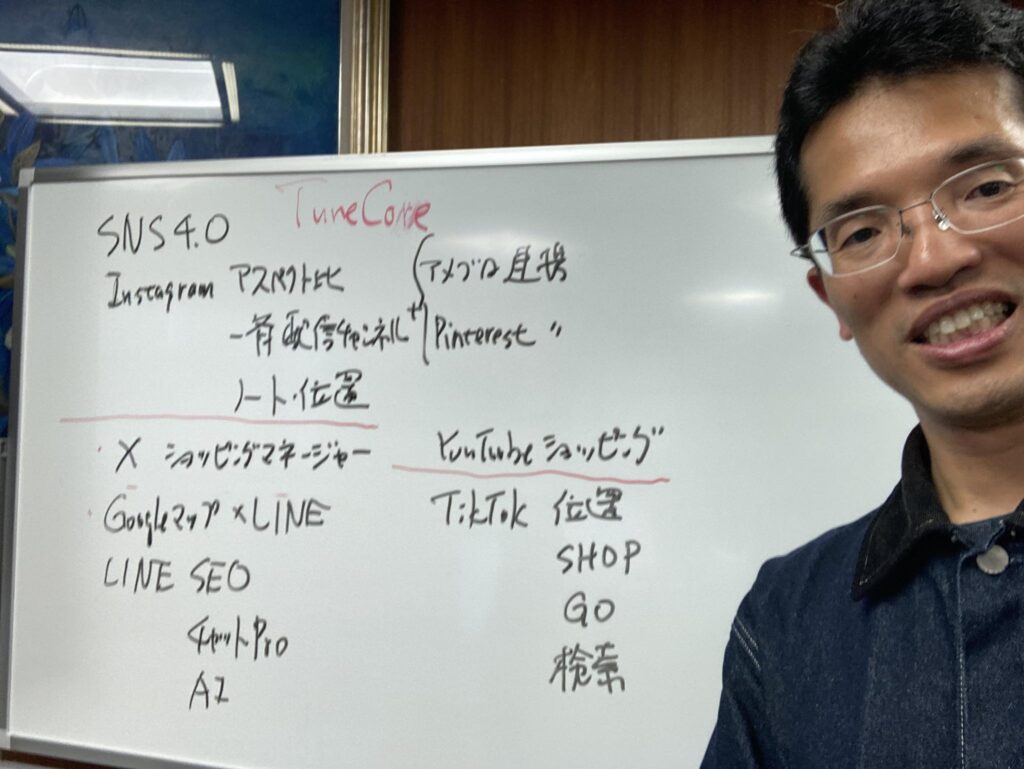 TuneCore
SNS 4.0
Instagram アスペクト比
一斉配信チャンネル
ノート・位置
アメブロ連携
Pinterest 〃
X ショッピングマネージャー
Googleマップ×LINE
LINE SEO
チャットPro
AI
YouTubeショッピング
TikTok 位置
SHOP
GO
検索